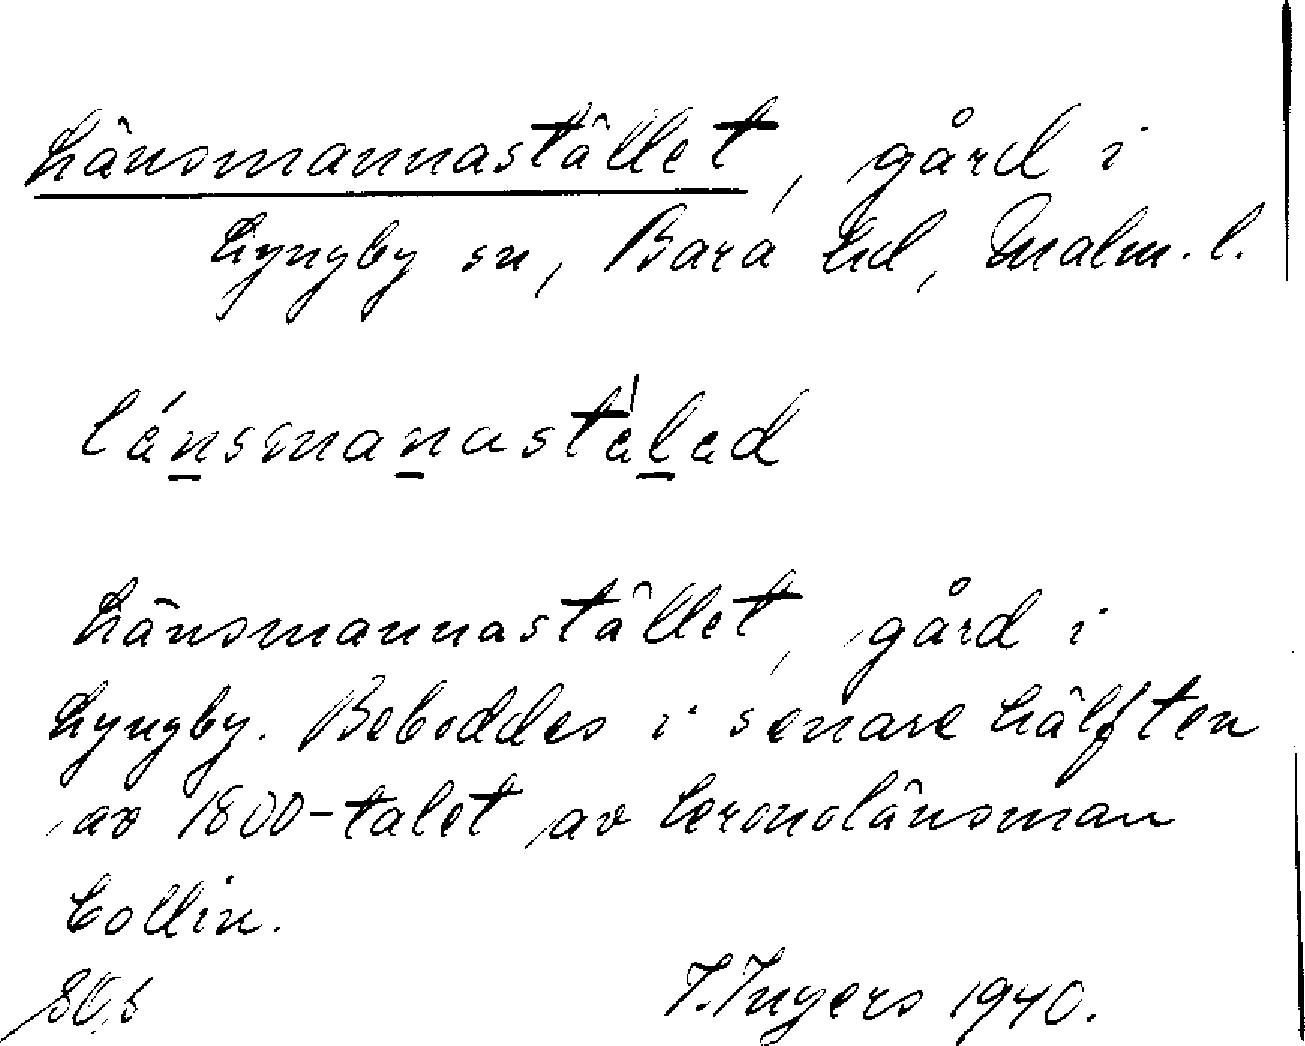 Länsmannastället, gård i
Lyngby sn, Bara hd, Malm. l.
länsmanastälad
Länsmannastället, gård i
Lyngby. Beboddes i senare hälften
av 1800-talet av kronolänsman
Collin.
I. Ingers 1940.